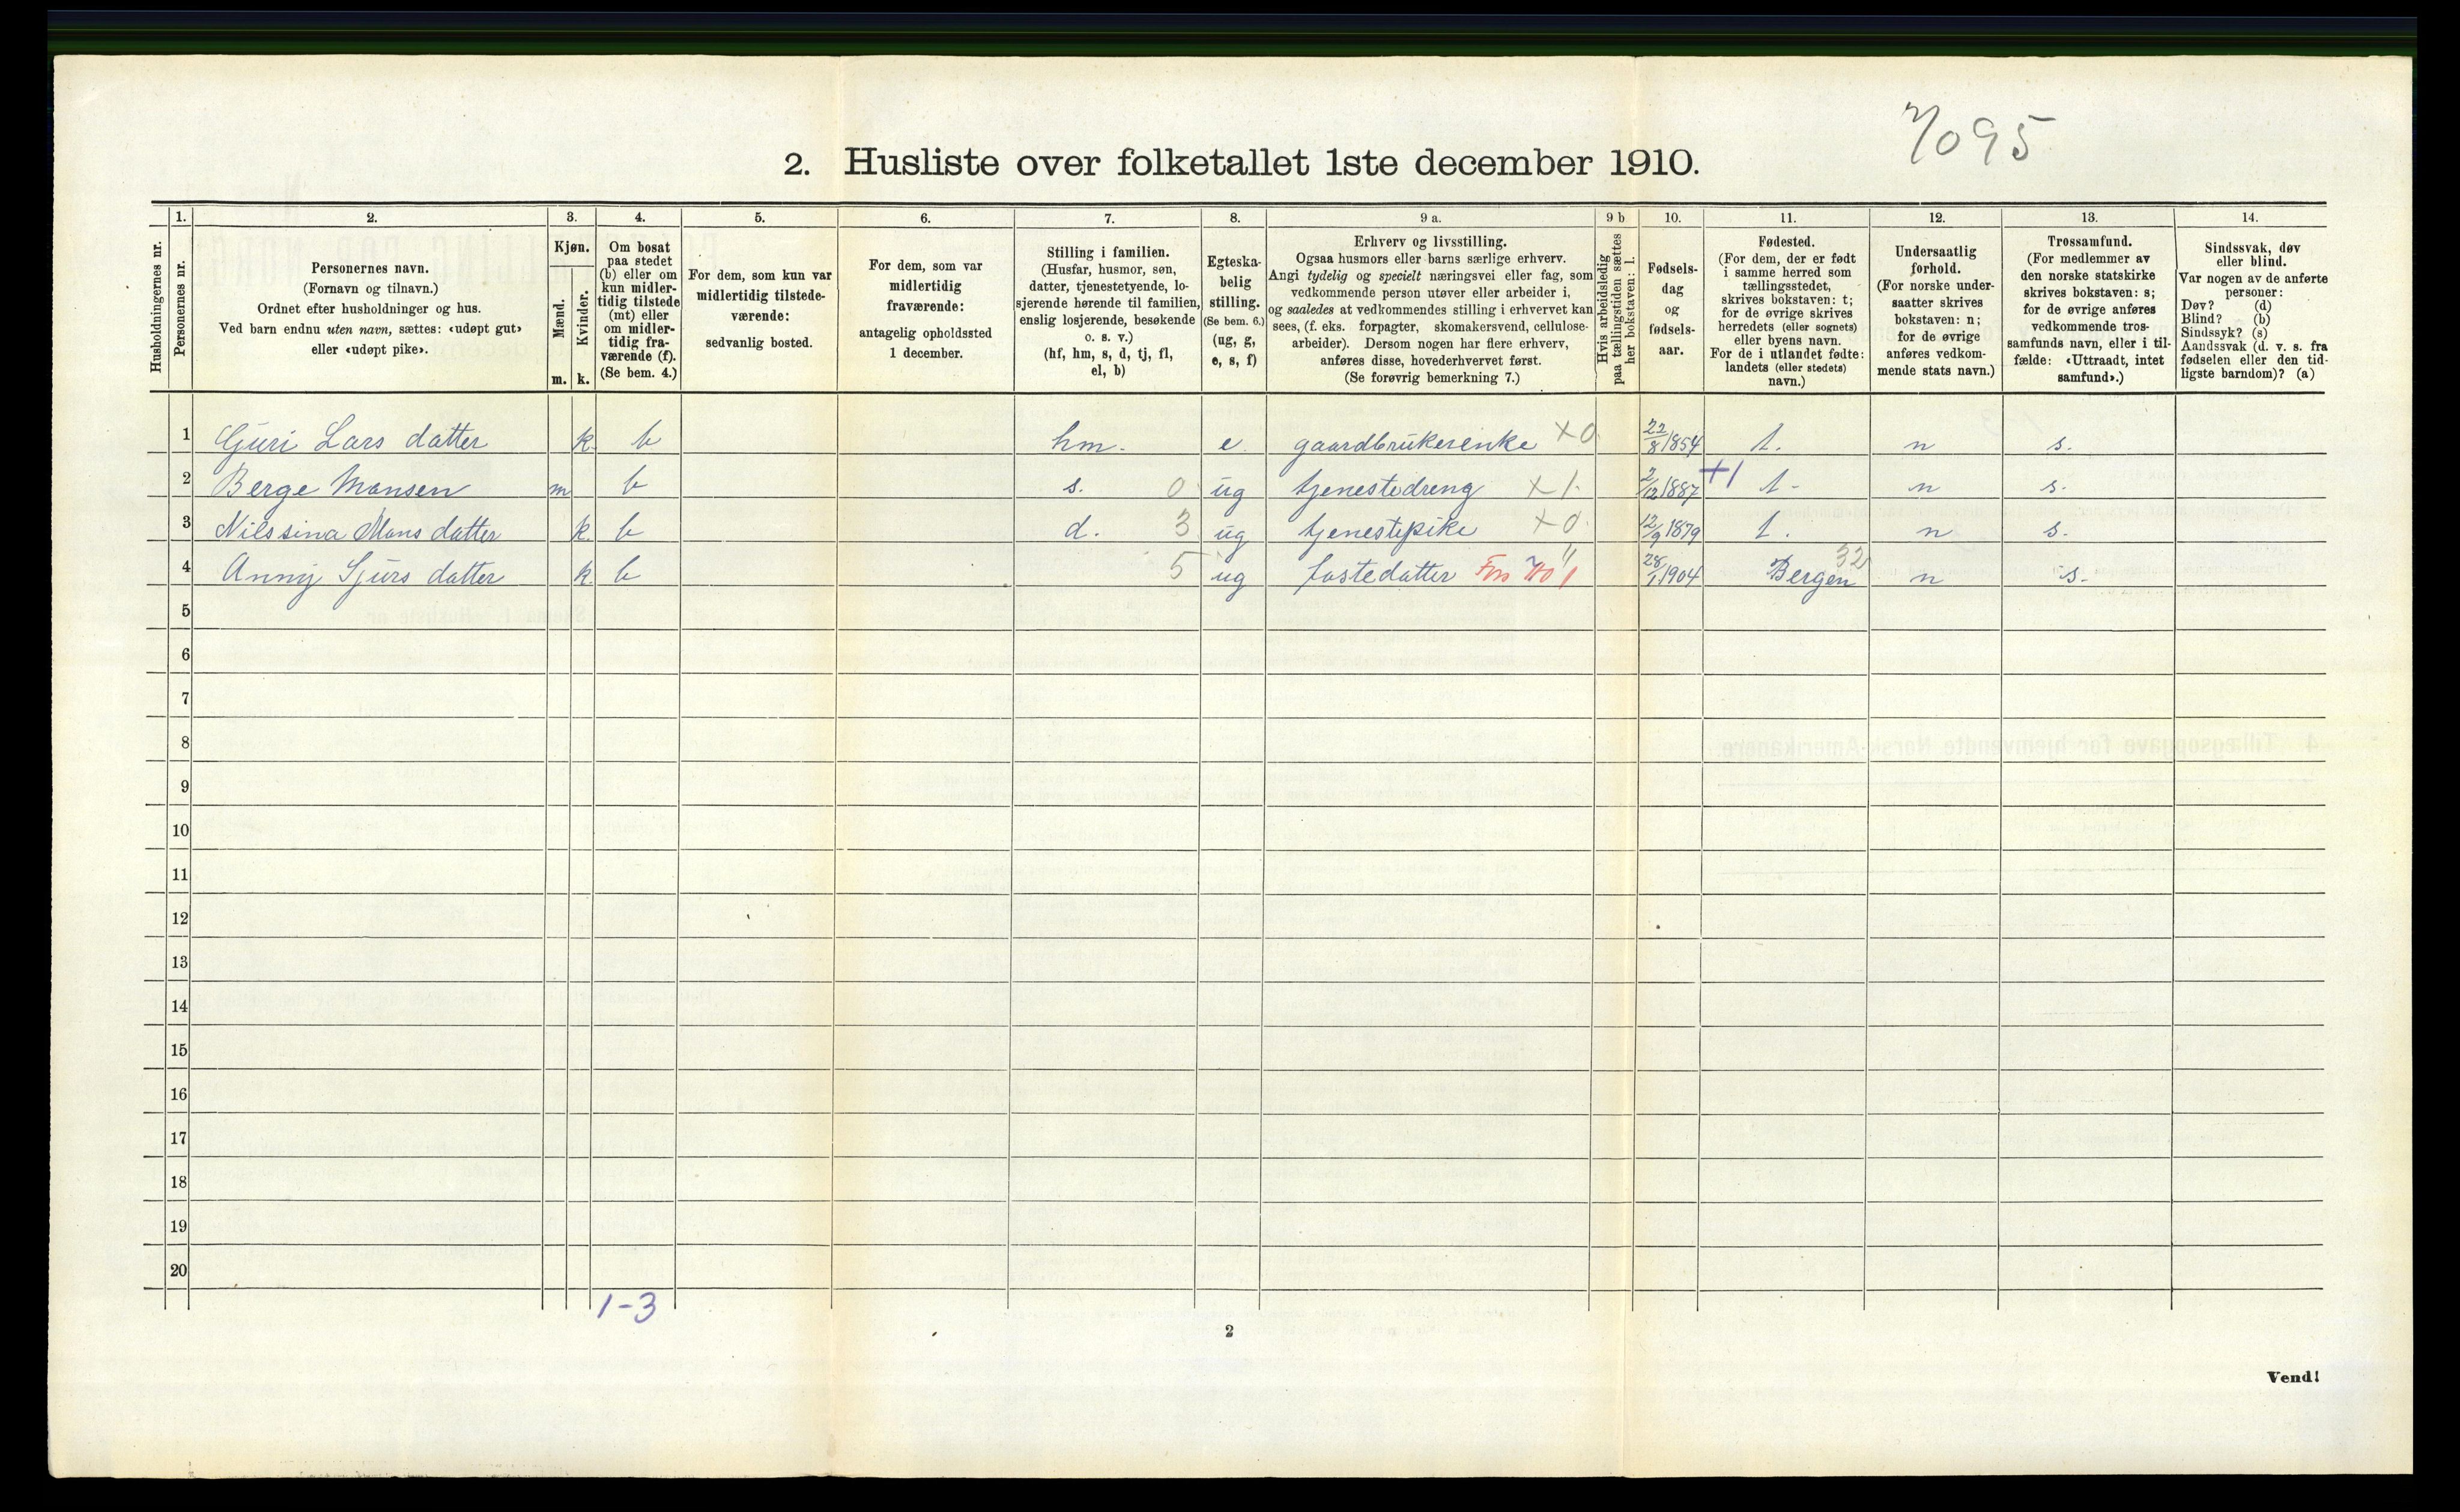 7095
2. Husliste over folketallet 1ste december 1910.
Husholdningernes nr.
1.
Personernes nr.
2.
Personernes navn.
(Fornavn og tilnavn.)
Ordnet efter husholdninger og hus.
Ved barn endnu uten navn, sættes: «udøpt gut»
eller «udøpt pike».
3.
Kjøn.
Mænd.
Kvinder.
m. k.
4.
Om bosat
paa stedet
(b) eller om
kun midler-
tidig tilstede
(mt) eller
om midler-
tidig fra-
værende (f).
(Se bem. 4.)
5.
For dem, som kun var
midlertidig tilstede-
værende:
sedvanlig bosted.
6.
For dem, som var
midlertidig
fraværende:
antagelig opholdssted
1 december.
7.
Stilling i familien.
(Husfar, husmor, søn,
datter, tjenestetyende, lo-
sjerende hørende til familien,
enslig losjerende, besøkende
o. s. v.)
(hf, hm, s, d, tj, fl,
el, b)
8.
Egteska-
belig
stilling.
(Se bem. 6.)
(ug, g,
e, s, f)
9 a.
Erhverv og livsstilling.
Ogsaa husmors eller barns særlige erhverv.
Angi tydelig og specielt næringsvei eller fag, som
vedkommende person utøver eller arbeider i,
og saaledes at vedkommendes stilling i erhvervet kan
sees, (f. eks. forpagter, skomakersvend, cellulose-
arbeider). Dersom nogen har flere erhverv,
anføres disse, hovederhvervet først.
(Se forøvrig bemerkning 7.)
9 b
Hvis arbeidsledig
paa tællingstiden sættes
her bokstaven: l.
10.
Fødsels-
dag
og
fødsels-
aar.
11.
Fødested.
(For dem, der er født
i samme herred som
tællingsstedet,
skrives bokstaven: t;
for de øvrige skrives
herredets (eller sognets)
eller byens navn.
For de i utlandet fødte:
landets (eller stedets)
navn.)
12.
Undersaatlig
forhold.
(For norske under-
saatter skrives
bokstaven: n;
for de øvrige
anføres vedkom-
mende stats navn.)
13.
Trossamfund.
(For medlemmer av
den norske statskirke
skrives bokstaven: s;
for de øvrige anføres
vedkommende tros-
samfunds navn, eller i til-
fælde: «Uttraadt, intet
samfund».)
14.
Sindssvak, døv
eller blind.
Var nogen av de anførte
personer:
Døv? (d)
Blind? (b)
Sindssyk? (s)
Aandssvak (d. v. s. fra
fødselen eller den tid-
ligste barndom)? (a)
1 Guri Lars datter k. b hm. e. gaardbrukerenke x 0. 22/8 1854 t. n s.
2 Berge Monsen m b s. 0 ug tjenestedreng x 1. 2/12 1887 +1 t - n s.
3 Nilssina Mons datter k. b d. 3 ug tjenestepike x 0. 12/9 1879 t. n s.
4 Anny Sjurs datter k. b 5 ug fostedatter 28/1 1904 Bergen 32 n s.
5
6
7
8
9
10
11
12
13
14
15
16
17
18
19
20
1-3
2
Vend!